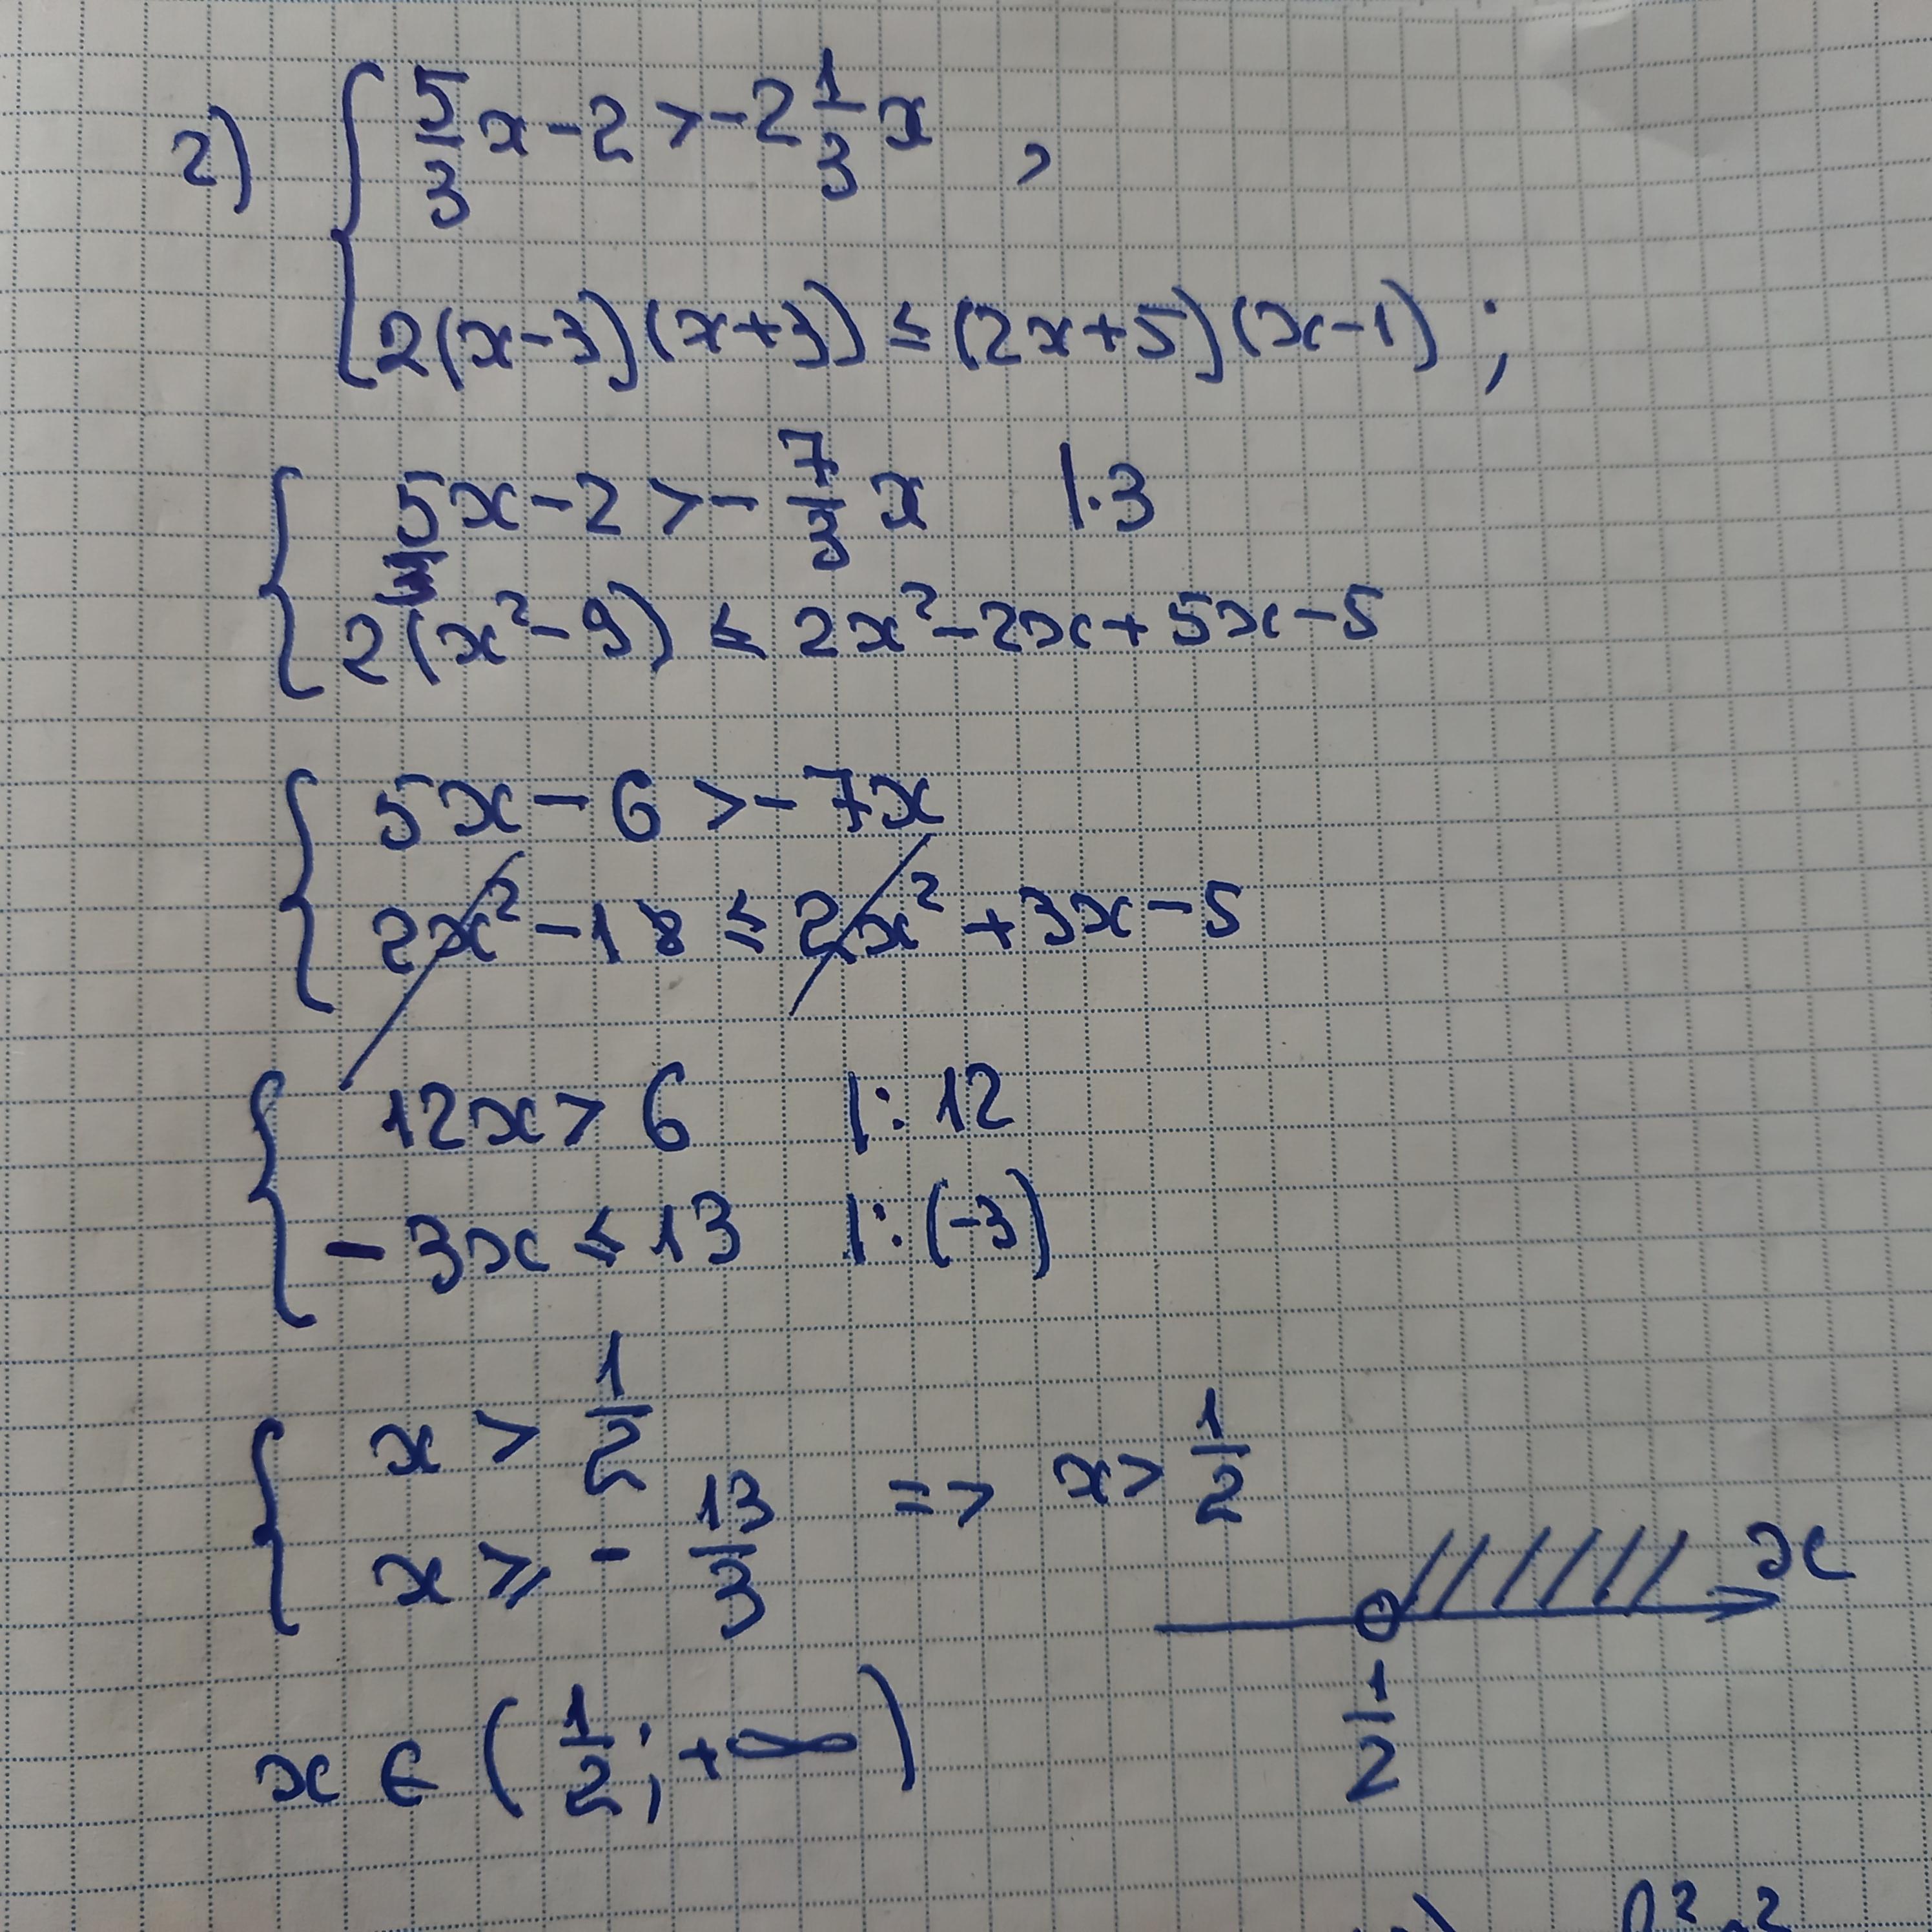 2) { 5/3 x - 2 > -2 1/3 x ,
2(x-3)(x+3) ≤ (2x+5)(x-1) ;
{ 5x - 2 > - 7/3 x |·3
2(x²-9) ≤ 2x²-2x+5x-5
{ 5x - 6 > - 7x
2x² - 18 ≤ 2x² + 3x - 5
{ 12x > 6 |: 12
- 3x ≤ 13 |: (-3)
{ x > 1/2
x ≥ - 13/3 => x > 1/2
x
1/2
x ∈ (1/2; +∞)